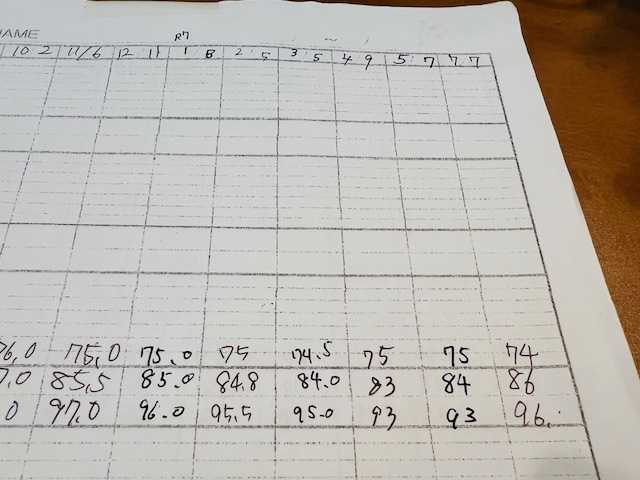 NAME
R7
10 2 11/6 12 11 1 8 2 5 3 5 4 9 5 7 7 7
76.0 75.0 75.0 75 74.5 75 75 74
7.0 85.5 85.0 84.8 84.0 83 84 86
.0 97.0 96.0 95.5 95.0 93 93 96.